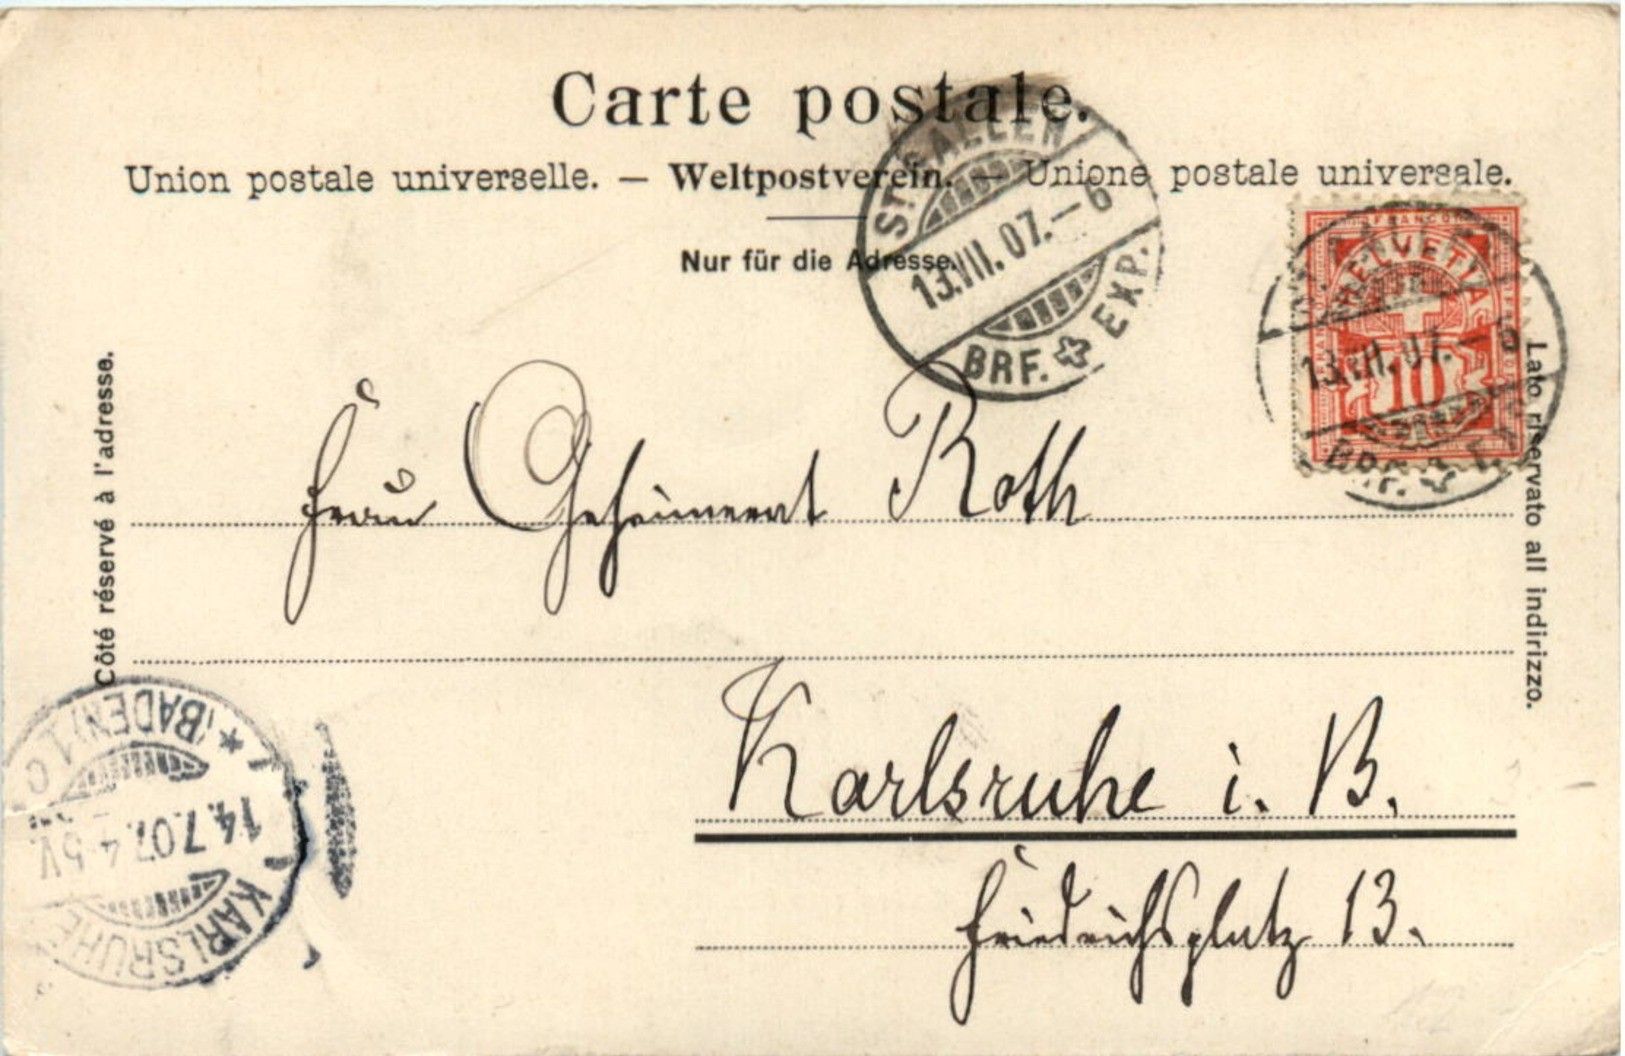 Carte postale.
Union postale universelle. — Weltpostverein. — Unione postale universale.
Nur für die Adresse.
Côté réservé à l'adresse.
Lato riservato all indirizzo.
ST. GALLEN
13.VII.07.–6
BRF. EXP.
FRANCO
HELVETIA
10
13.VII.07.–6
Frau Geheimerat Roth
Karlsruhe i. B.
Friedrichsplatz 13.
KARLSRUHE (BADEN) 1
14.7.07. 4-5V.